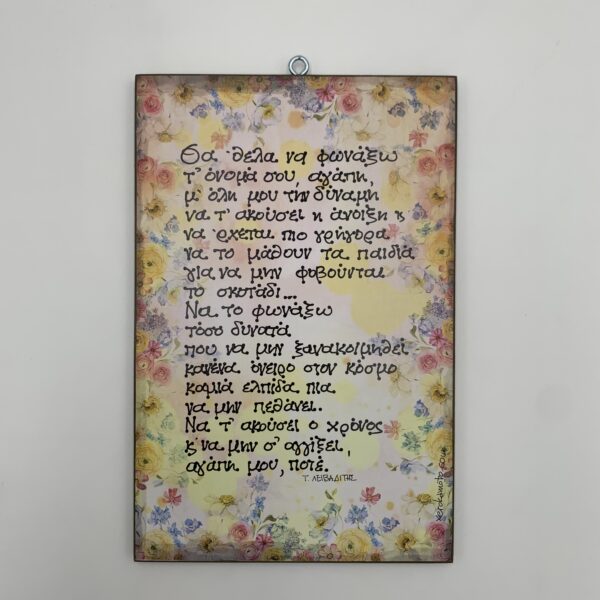 Θα 'θελα να φωνάξω
τ' όνομά σου, αγάπη,
μ' όλη μου την δύναμη
να τ' ακούσει η άνοιξη κ
να έρχεται πιο γρήγορα
να το μάθουν τα παιδιά
για να μην φοβούνται
το σκοτάδι...
Να το φωνάξω
τόσο δυνατά
που να μην ξανακοιμηθεί
κανένα όνειρο στον κόσμο
καμιά ελπίδα πια
να μην πεθάνει.
Να τ' ακούσει ο χρόνος
κ' να μην σ' αγγίξει,
αγάπη μου, ποτέ.
Τ. ΛΕΙΒΑΔΙΤΗΣ